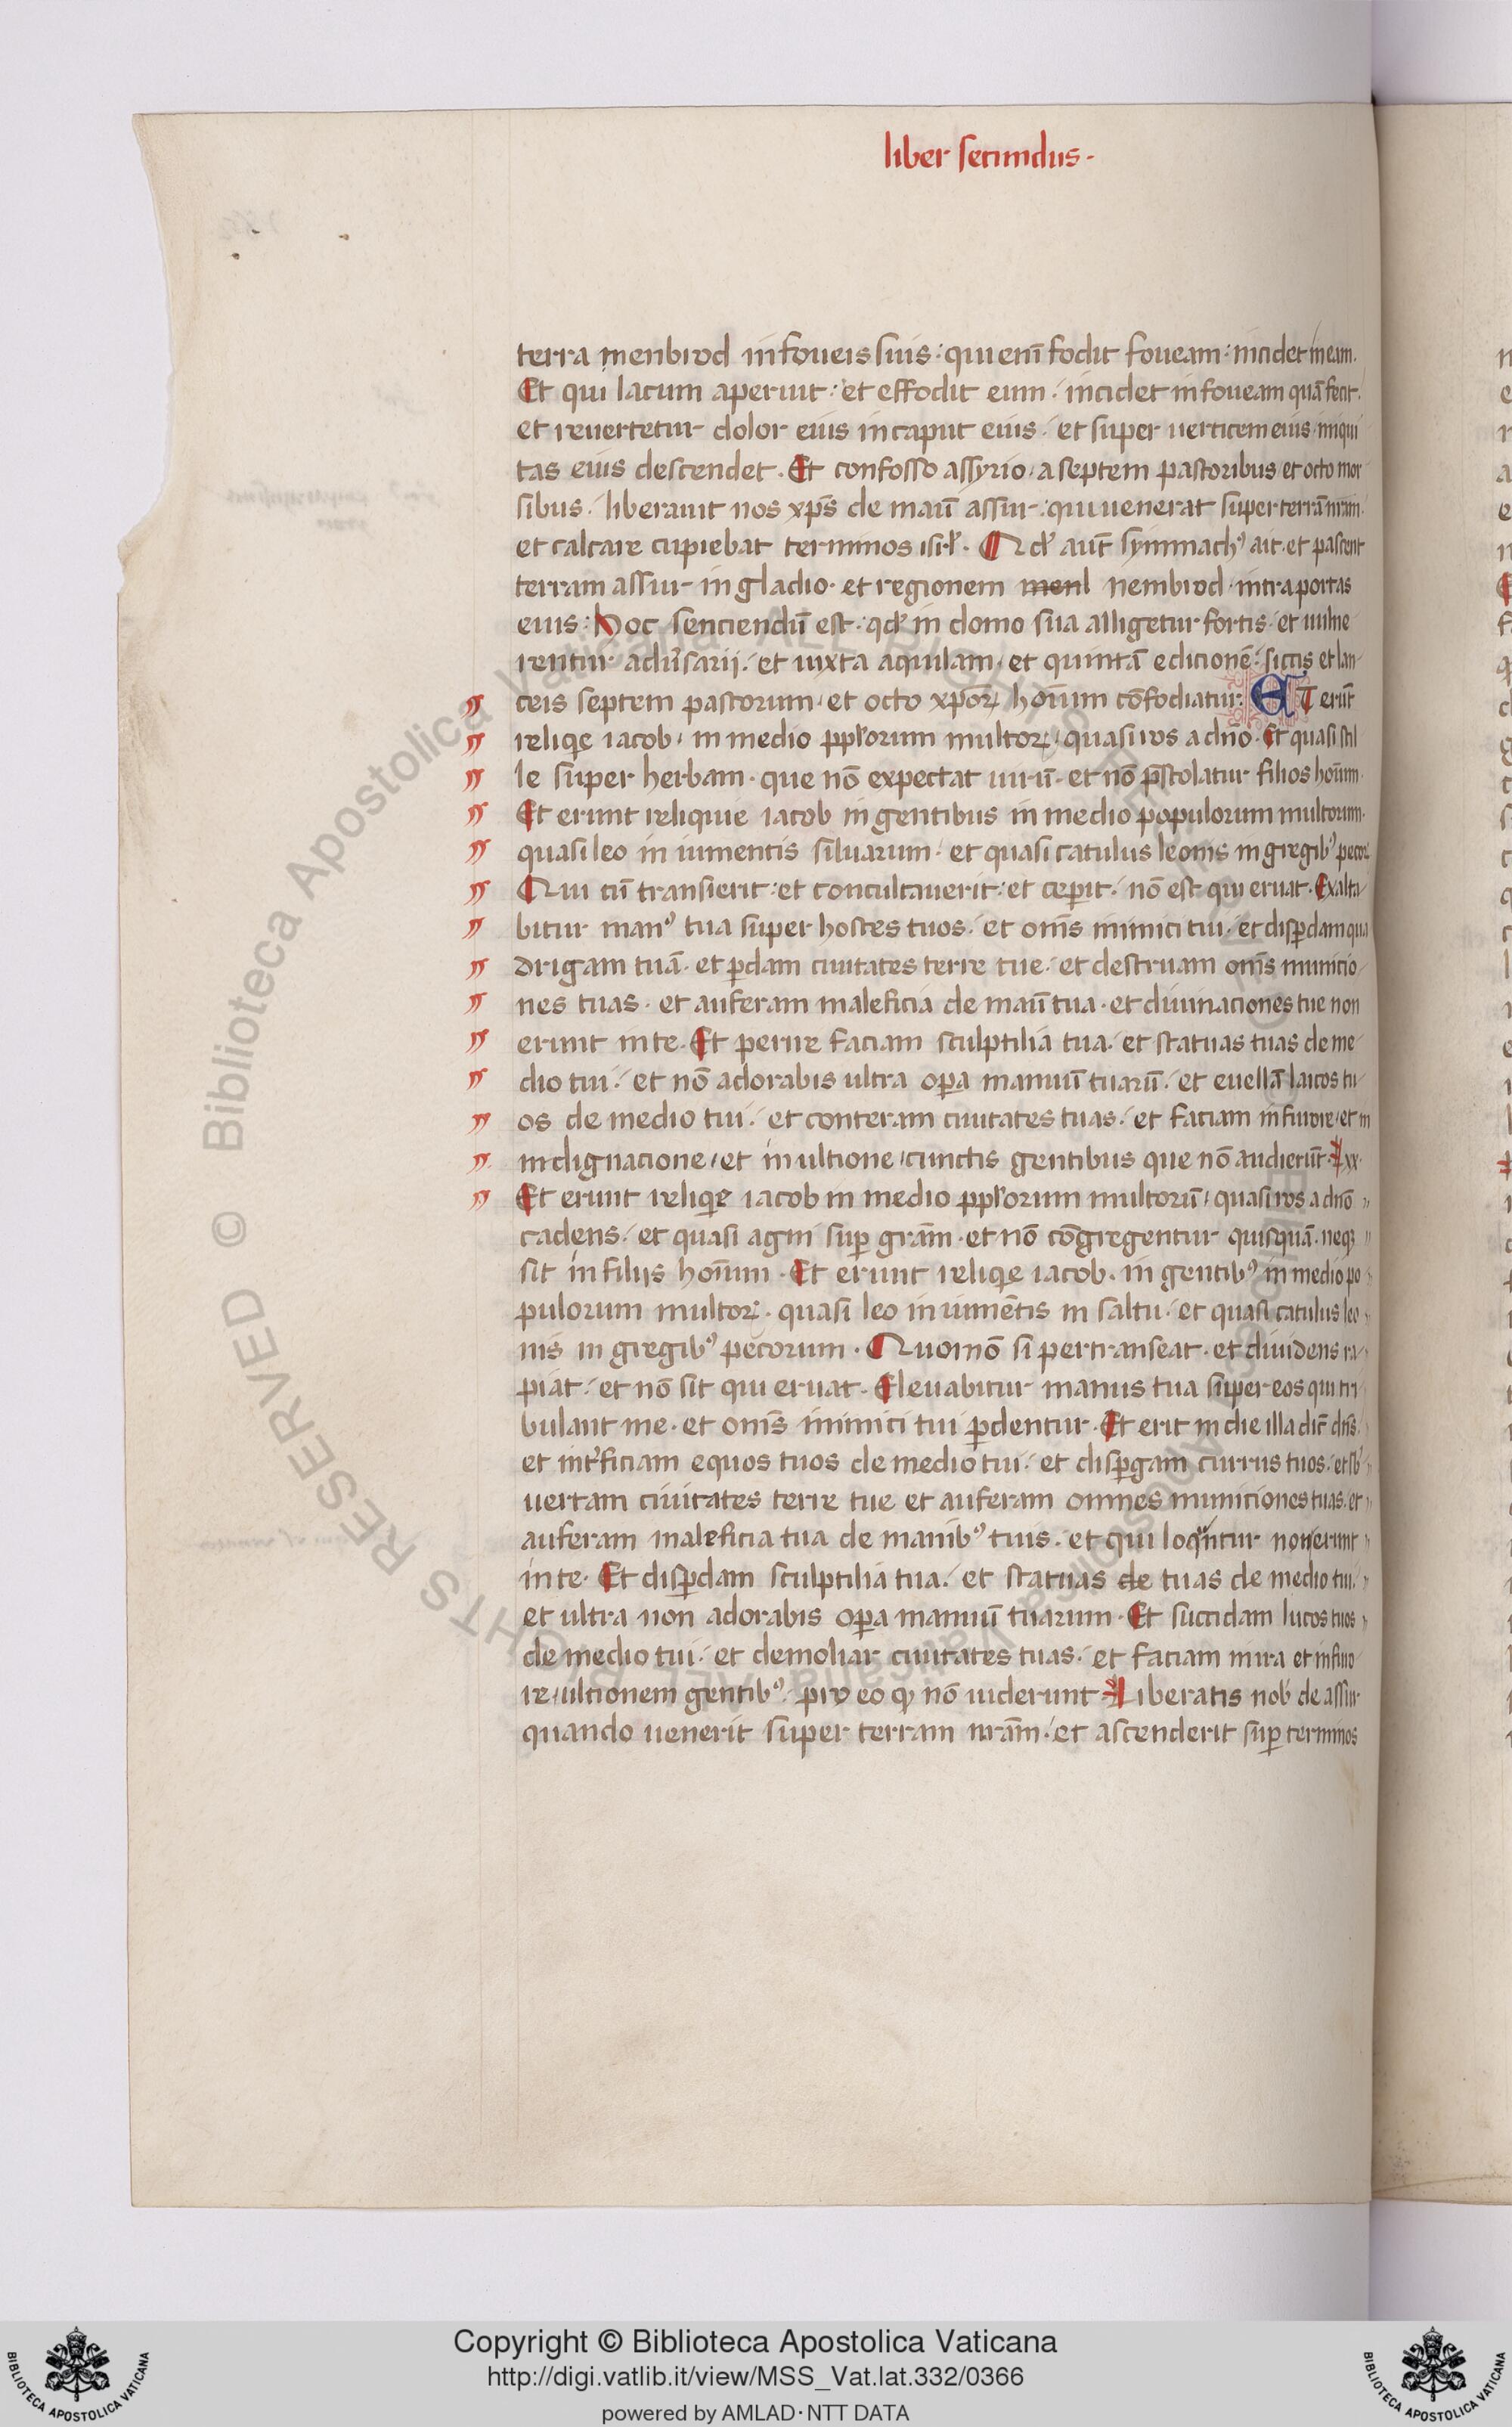 liber secundus.
terra menbrod in foueis suis : qui eni̅ fodit foueam : incidet in eam.
Et qui lacum aperuit : et effodit eum . incidet in foueam qua̅ fecit.
et reuertetur dolor eius in caput eius . et super uerticem eius iniqui
tas eius descendet . Et confosso assyrio . a septem pastoribus et octo mor
sibus . liberauit nos xp̅s de manu̅ assur . qui uenerat super terra̅ nr̅am
et calcare cupiebat terminos isrl̅ . Qd̅ aut̅ symmachꝰ ait . et pascent
terram assur in gladio . et regionem menl nembrod . intra portas
eius : Hoc senciendu̅ est . qd̅ in domo sua alligetur fortis . et uulne
rentur adu̓sarij . et iuxta aquilam . et quinta̅ edicione̅ : siccis et lan
ceis septem pastorum . et octo xp̅oꝝ ho̅ium co̅fodiatur : ET eru̅t
reliqe iacob . in medio ppl̓orum multoꝝ . quasi ros a dn̅o . Et quasi stil
le super herbam . que no̅ expectat uiru̅ . et no̅ p̅stolatur filios ho̅ium.
Et erunt reliquie iacob in gentibus in medio populorum multorum.
quasi leo in iumentis siluarum . et quasi catulus leonis in gregibꝰ pecoꝝ
Qui cu̅ transierit : et conculcauerit : et ceꝑit . no̅ est qui eruat . Exalta
bitur manꝰ tua super hostes tuos . et om̅s inimici tui . et disꝑdam qua
drigam tua̅ . et ꝑdam ciuitates terre tue . et destruam om̅s municio
nes tuas . et auferam maleficia de manu̅ tua . et diuinaciones tue non
erunt in te . Et perire faciam sculptilia tua . et statuas tuas de me
dio tui . et no̅ adorabis ultra oꝑa manuu̅ tuaru̅ . et euella̅ laicos tu
os de medio tui . et conteram ciuitates tuas . et faciam in furore . et in
indignacione . et in ultione . cunctis gentibus que no̅ audieru̅t . Lxx.
Et erunt reliqe iacob in medio ppl̓orum multoru̅ . quasi ros a dn̅o
cadens . et quasi agni suꝑ gra̅m . et no̅ co̅gregentur quisqua̅ . neqꝫ
sit in filijs ho̅ium . Et erunt reliqe iacob . in gentibꝰ in medio po
pulorum multoꝝ . quasi leo in iume̅tis in saltu . et quasi catulus leo
nis in gregibꝰ pecorum . Quomo̅ si pertranseat . et diuidens ra
piat . et no̅ sit qui eruat . Eleuabitur manus tua super eos qui tri
bulant me . et om̅s inimici tui ꝑdentur . Et erit in die illa dic̅ dn̅s.
et int̓ficiam equos tuos de medio tui . et disꝑgam currus tuos . et sb̓
uertam ciuitates terre tue et auferam omnes municiones tuas . et
auferam maleficia tua de manibꝰ tuis . et qui loquntur non erunt
in te . Et disꝑdam sculptilia tua . et statuas de tuas de medio tui.
et ultra non adorabis oꝑa manuu̅ tuarum . Et succidam lucos tuos
de medio tui . et demoliar ciuitates tuas . et faciam in ira et in furo
re . ultionem gentibꝰ . pro eo qꝫ no̅ uiderunt . Liberatis nob̓ de assur
quando uenerit super terram nr̅am . et ascenderit suꝑ terminos
© Biblioteca Apostolica Vaticana ALL RIGHTS RESERVED
Copyright © Biblioteca Apostolica Vaticana
http://digi.vatlib.it/view/MSS_Vat.lat.332/0366
powered by AMLAD·NTT DATA
BIBLIOTECA APOSTOLICA VATICANA
BIBLIOTECA APOSTOLICA VATICANA